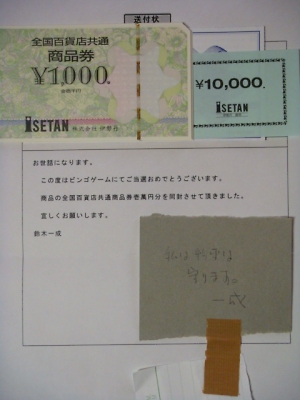 送付状
全国百貨店共通
商品券
¥1,000
ISETAN 株式会社 伊勢丹
¥10,000
ISETAN
お世話になります。
この度はビンゴゲームにてご当選おめでとうございます。
商品の全国百貨店共通商品券壱萬円分を同封させて頂きました。
宜しくお願いします。
鈴木一成
私は約束は
守ります。
一成